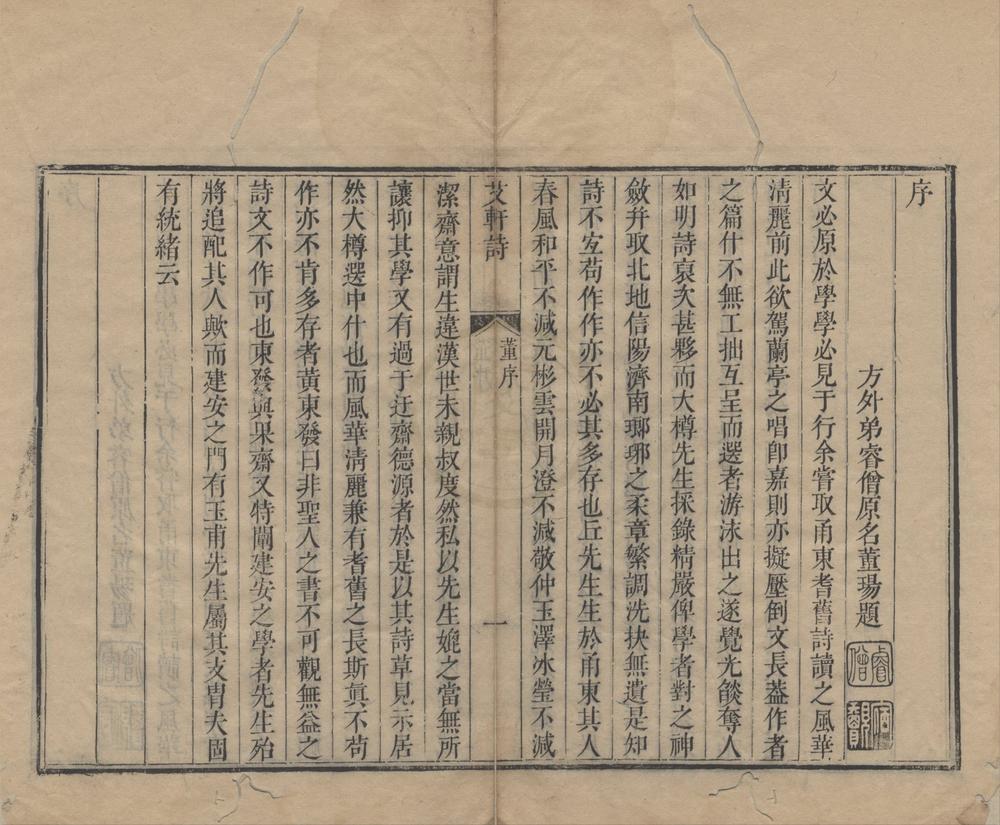 序
方外弟睿僧原名董瑒題
文必原於學學必見于行余嘗取甬東耆舊詩讀之風華
清麗前此欲駕蘭亭之唱卽嘉則亦擬壓倒文長葢作者
之篇什不無工拙互呈而選者游泳出之遂覺光燄奪人
如明詩裒次甚夥而大樽先生採錄精嚴俾學者對之神
斂幷取北地信陽濟南瑯琊之柔章繁調洗抉無遺是知
詩不宐苟作作亦不必其多存也丘先生生於甬東其人
春風和平不減元彬雲開月澄不減敬仲玉澤冰瑩不減
艾軒詩 董序 一
潔齋意謂生違漢世未親叔度然私以先生媲之當無所
讓抑其學又有過于迂齋德源者於是以其詩草見示居
然大樽選中什也而風華清麗兼有耆舊之長斯眞不苟
作亦不肯多存者黃東發曰非聖人之書不可觀無益之
詩文不作可也東發與果齋又特闡建安之學者先生殆
將追配其人歟而建安之門有玉甫先生屬其支胄夫固
有統緒云